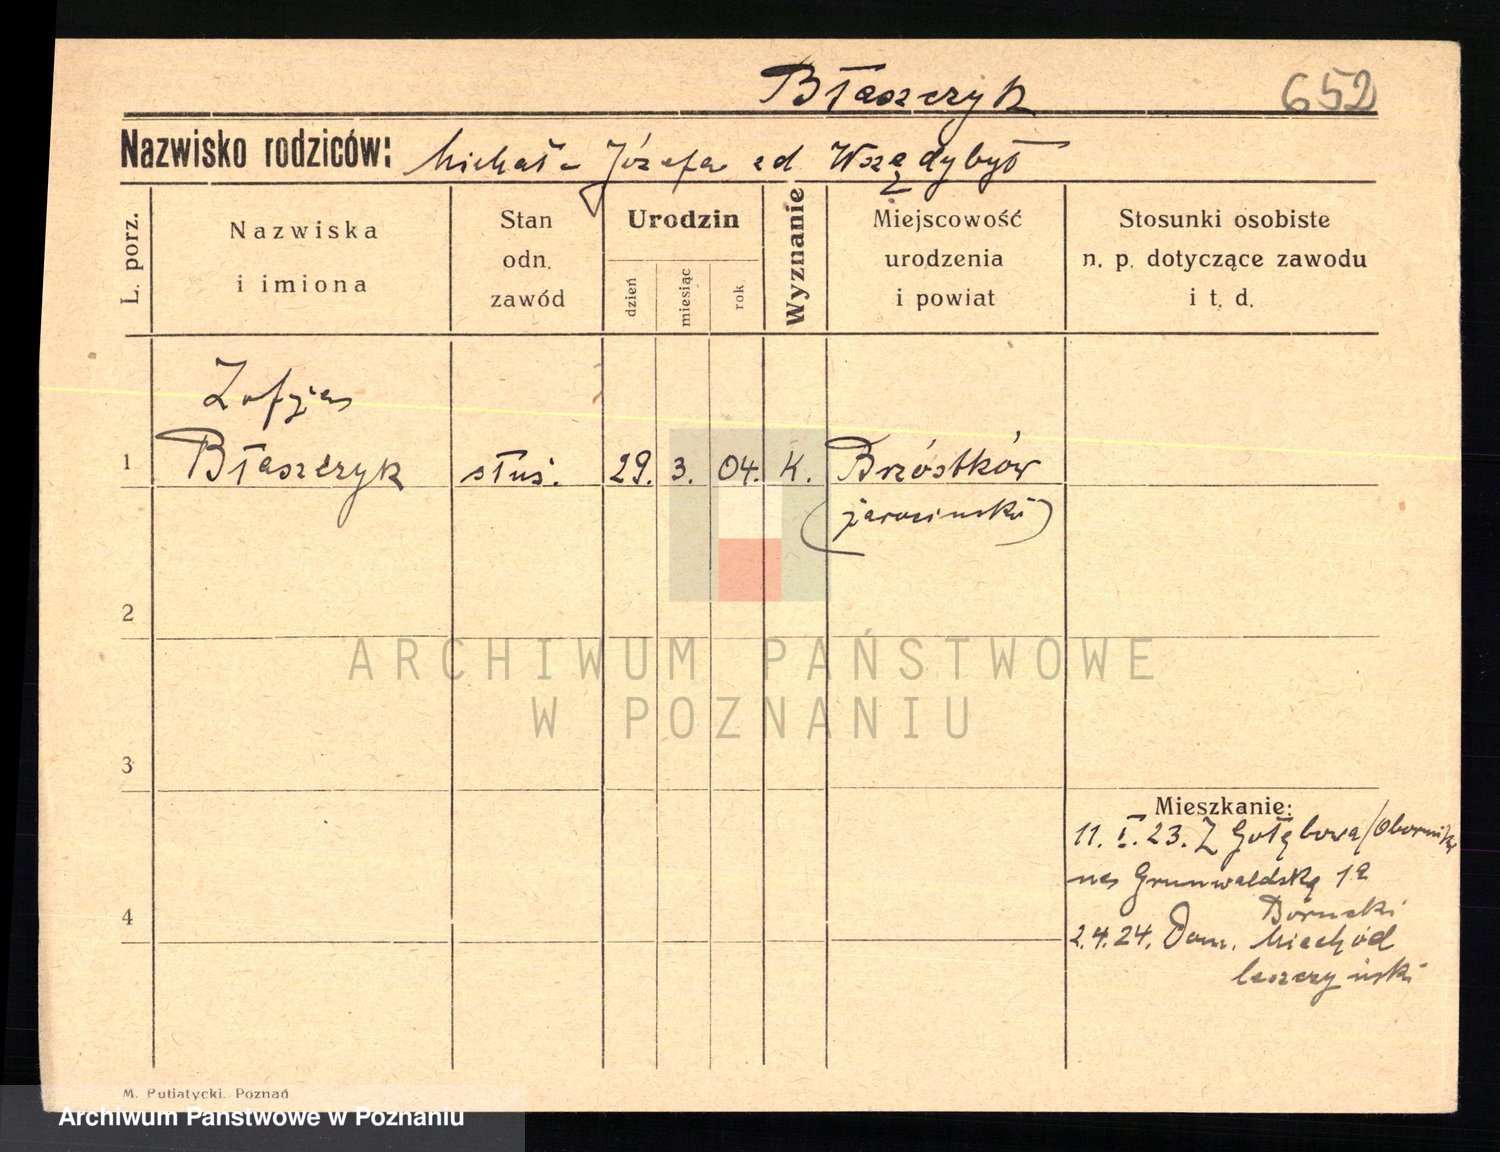 Błaszczyk 652
Nazwisko rodziców: Michał - Józefa zd Wszędybył
L. porz.
Nazwiska
i imiona
Stan
odn.
zawód
Urodzin
dzień
miesiąc
rok.
Wyznanie
Miejscowość
urodzenia
i powiat
Stosunki osobiste
n. p. dotyczące zawodu
i t. d.
Zofja
1 Błaszczyk służ. 29. 3. 04. K. Brzóstków
(jarocinski)
2
ARCHIWUM PAŃSTWOWE
W POZNANIU
3
Mieszkanie:
11. I. 23. Z Gołębowa/Oborniki
na Grunwaldską 1a
4
Borucki
2.4.24. Dom. Miechód
leszczyński
M. Putiatycki. Poznań
Archiwum Państwowe w Poznaniu